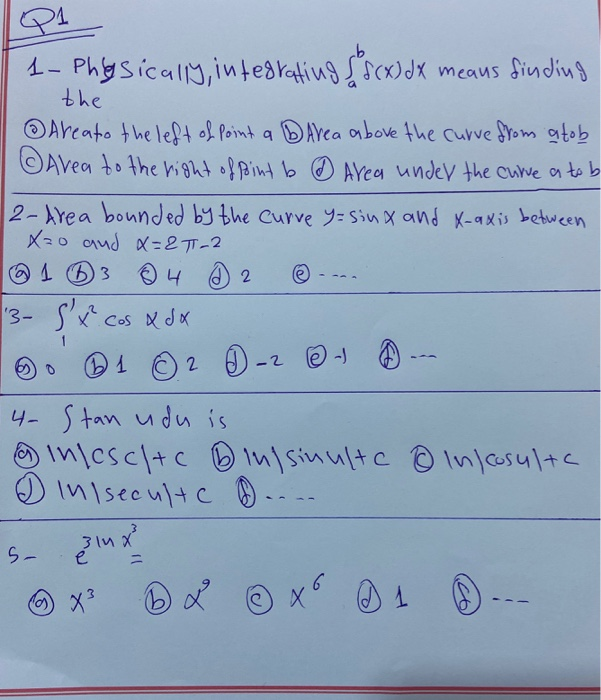 Q1
1- Physically, integrating ∫ₐᵇ f(x)dx means finding
the
ⓐ Area to the left of Point a ⓑ Area above the curve from a to b
ⓒ Area to the right of Point b ⓓ Area under the curve a to b
2- Area bounded by the curve y=sin x and x-axis between
x=0 and x=2π-2
ⓐ 1 ⓑ 3 ⓒ 4 ⓓ 2 ⓔ ----
3- ∫₁¹ x² cos x dx
ⓐ 0 ⓑ 1 ⓒ 2 ⓓ -2 ⓔ -1 ⓕ ---
4- ∫tan u du is
ⓐ ln|csc|+c ⓑ ln|sinu|+c ⓒ ln|cosu|+c
ⓓ ln|secu|+c ⓕ -----
5- e^{3 ln x³} =
ⓐ x³ ⓑ x⁹ ⓒ x⁶ ⓓ 1 ⓕ ---